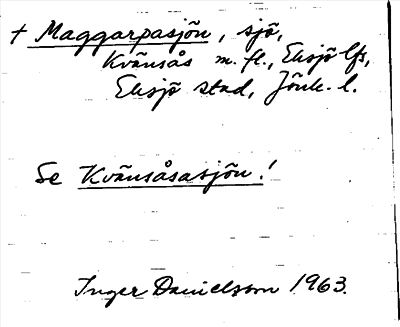 + Maggarpasjön, sjö,
Kvänsås m. fl., Eksjö lfs,
Eksjö stad, Jönk. l.
Se Kvänsåsasjön!
Inger Danielsson 1963.